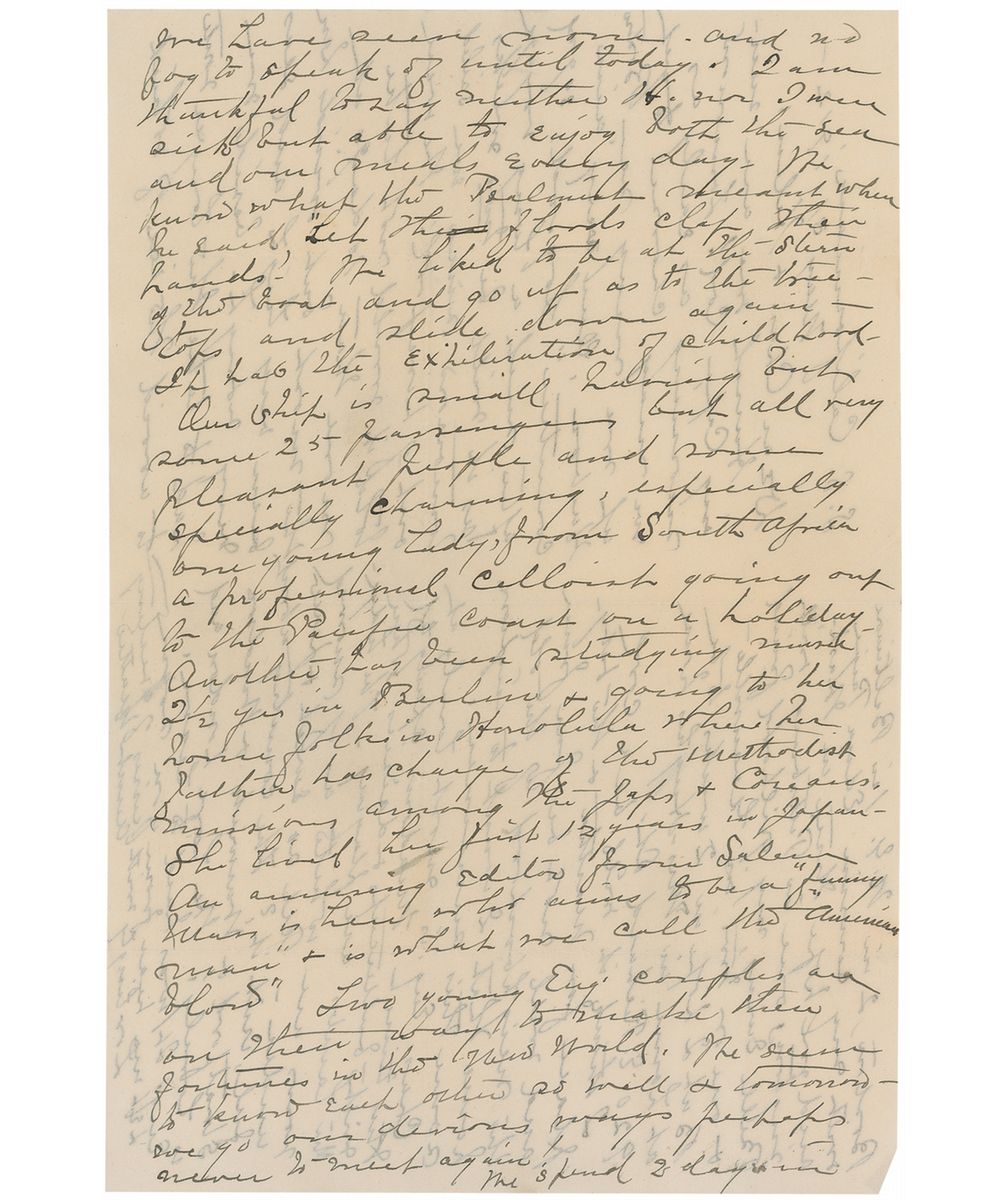 we have seen none - and no
fog to speak of until today. I am
thankful to say neither H. nor I were
sick but able to enjoy both the sea
and our meals every day - We
know what the Psalmist meant when
he said "Let the floods clap their
hands." We liked to be at the stern
of the boat and go up as to the tree-
tops and slide down again -
It has the exhiliration of childhood -
Our ship is small having but
some 25 passengers but all very
pleasant people and some
specially charming, especially
one young lady, from South Africa
a professional celloist going out
to the Pacific coast on a holiday -
Another has been studying music
2½ yrs in Berlin & going to her
home folks in Honolulu where her
father has charge of the Methodist
missions among the Japs & Coreans.
She lived her first 12 years in Japan -
An amusing Editor from Salem
Mass is here who aims to be a "funny
man" & is what we call the "American
blow" Two young Eng. couples are
on their way to make their
fortunes in the New World. We seem
to know each other so well & tomorrow -
we go our devious ways perhaps
never to meet again! We spend 2 days in